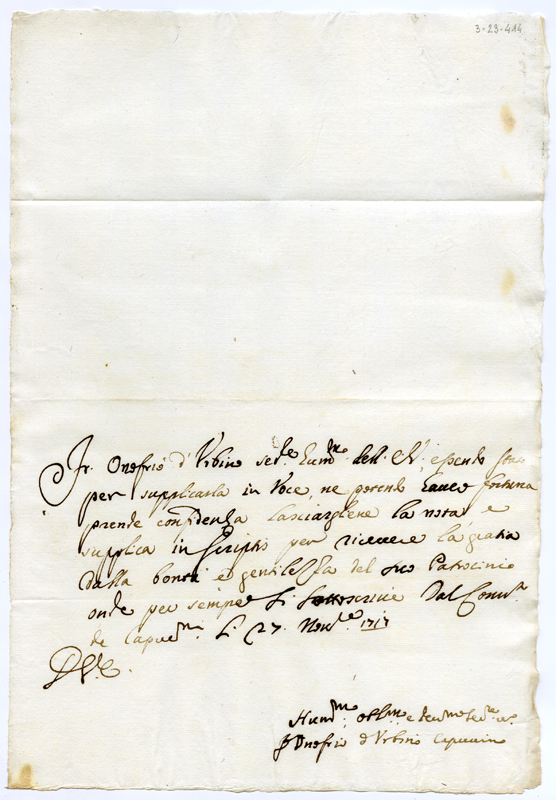 3-23-414
Fr. Onofrio d'Urbino ser.le hum.mo dell. N. essendo stato
per supplicarla in voce, ne potendo haver fortuna
prende confidenza lasciargliene la nota e
supplica in scriptis per ricevere la gratia
dalla bontà e gentilezza del suo Patrocinio
onde per sempre si sottoscrive Dal Conv.to
de Capuc.ni li 27. Nov.re 1717
Hum.mo obl.mo e
Onofrio d'Urbino Capuccino